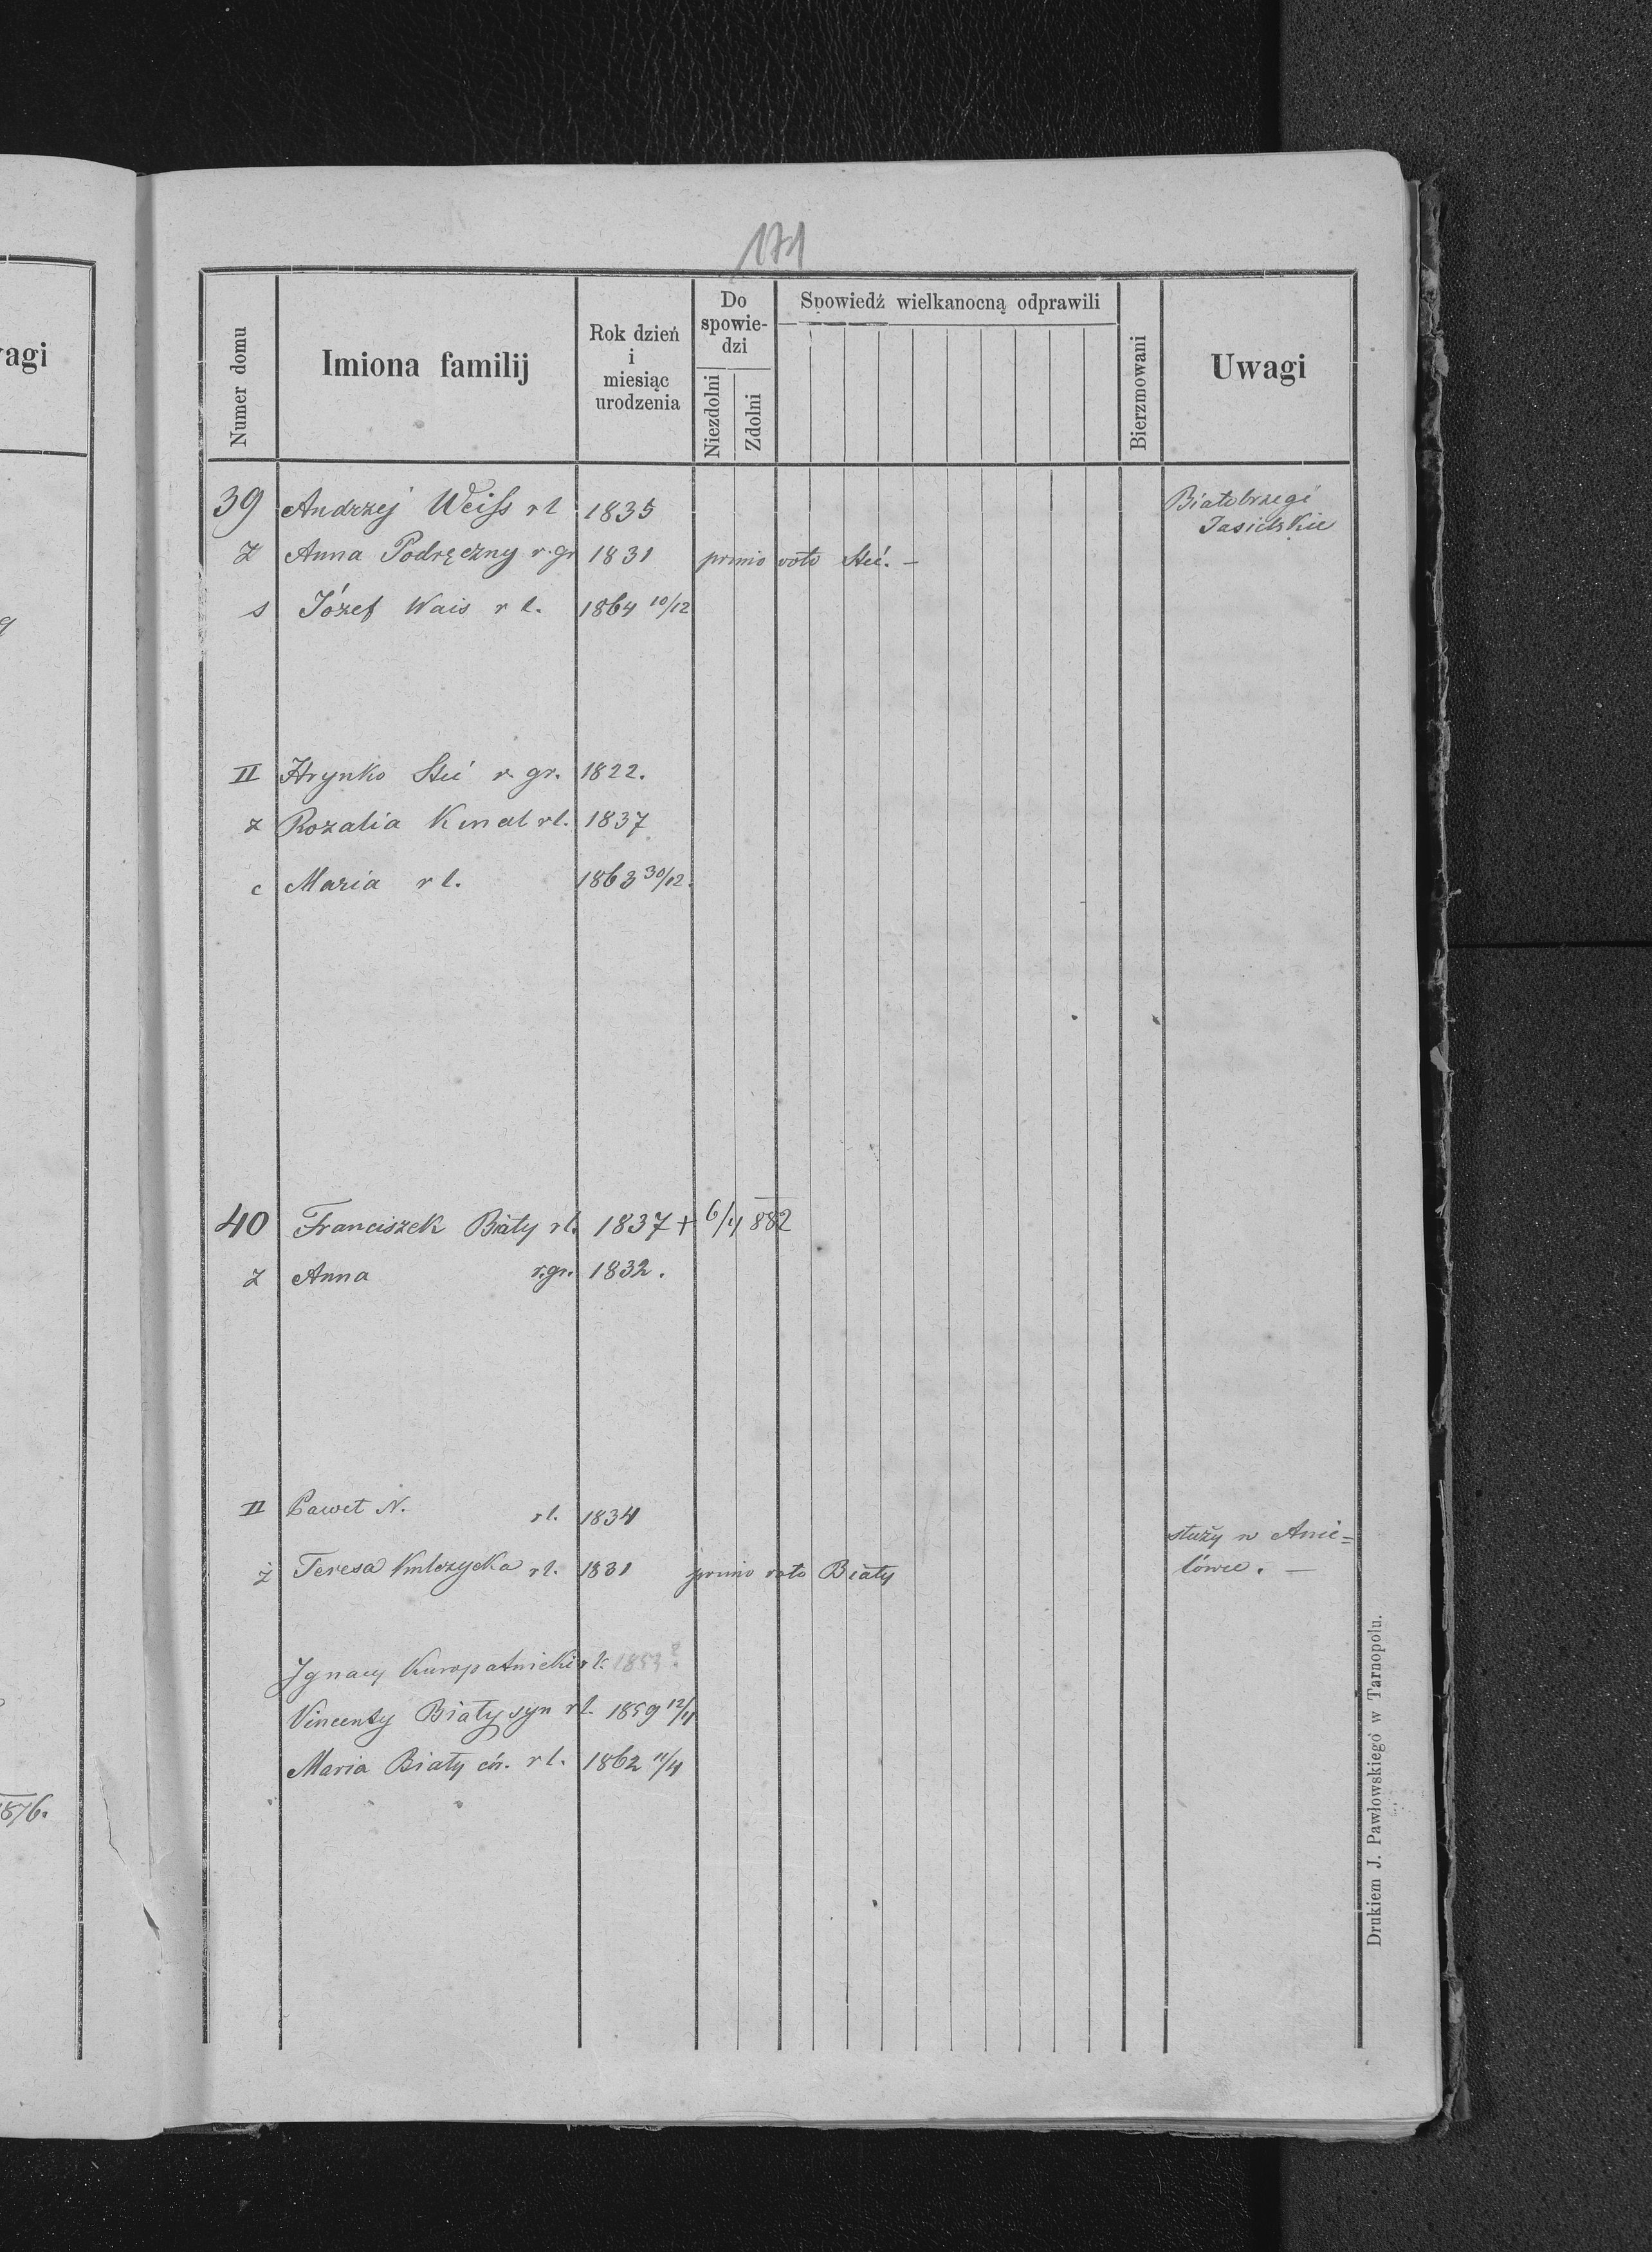 171
Numer domu
Imiona familij
Rok dzień
i
miesiąc
urodzenia
Do
spowie-
dzi
Niezdolni
Zdolni
Spowiedź wielkanocną odprawili
Bierzmowani
Uwagi
39 Andrzej Weiss rł 1835 Białobrzegi
Jasielskie
ż Anna Podręczny r. gr 1831 primo voto Steć. –
s Józef Wais r ł. 1864 10/12
II Hrynko Steć r. gr. 1822.
ż Rozalia Kmat rł. 1837
c Maria r ł. 1863 30/12.
40 Franciszek Biały rł. 1837 + 6/4 882
ż Anna r.gr. 1832.
II Paweł N. rł. 1834
służy w Anie=
lówce. –
ż Teresa Kulczycka rł. 1831 primo voto Biały
Ignacy Kuropatnicki rł. 1853?
Vincenty Biały syn rł. 1859 12/4
Maria Biały cór. r ł. 1862 11/4
Drukiem J. Pawłowskiego w Tarnopolu.
vagi
1876.